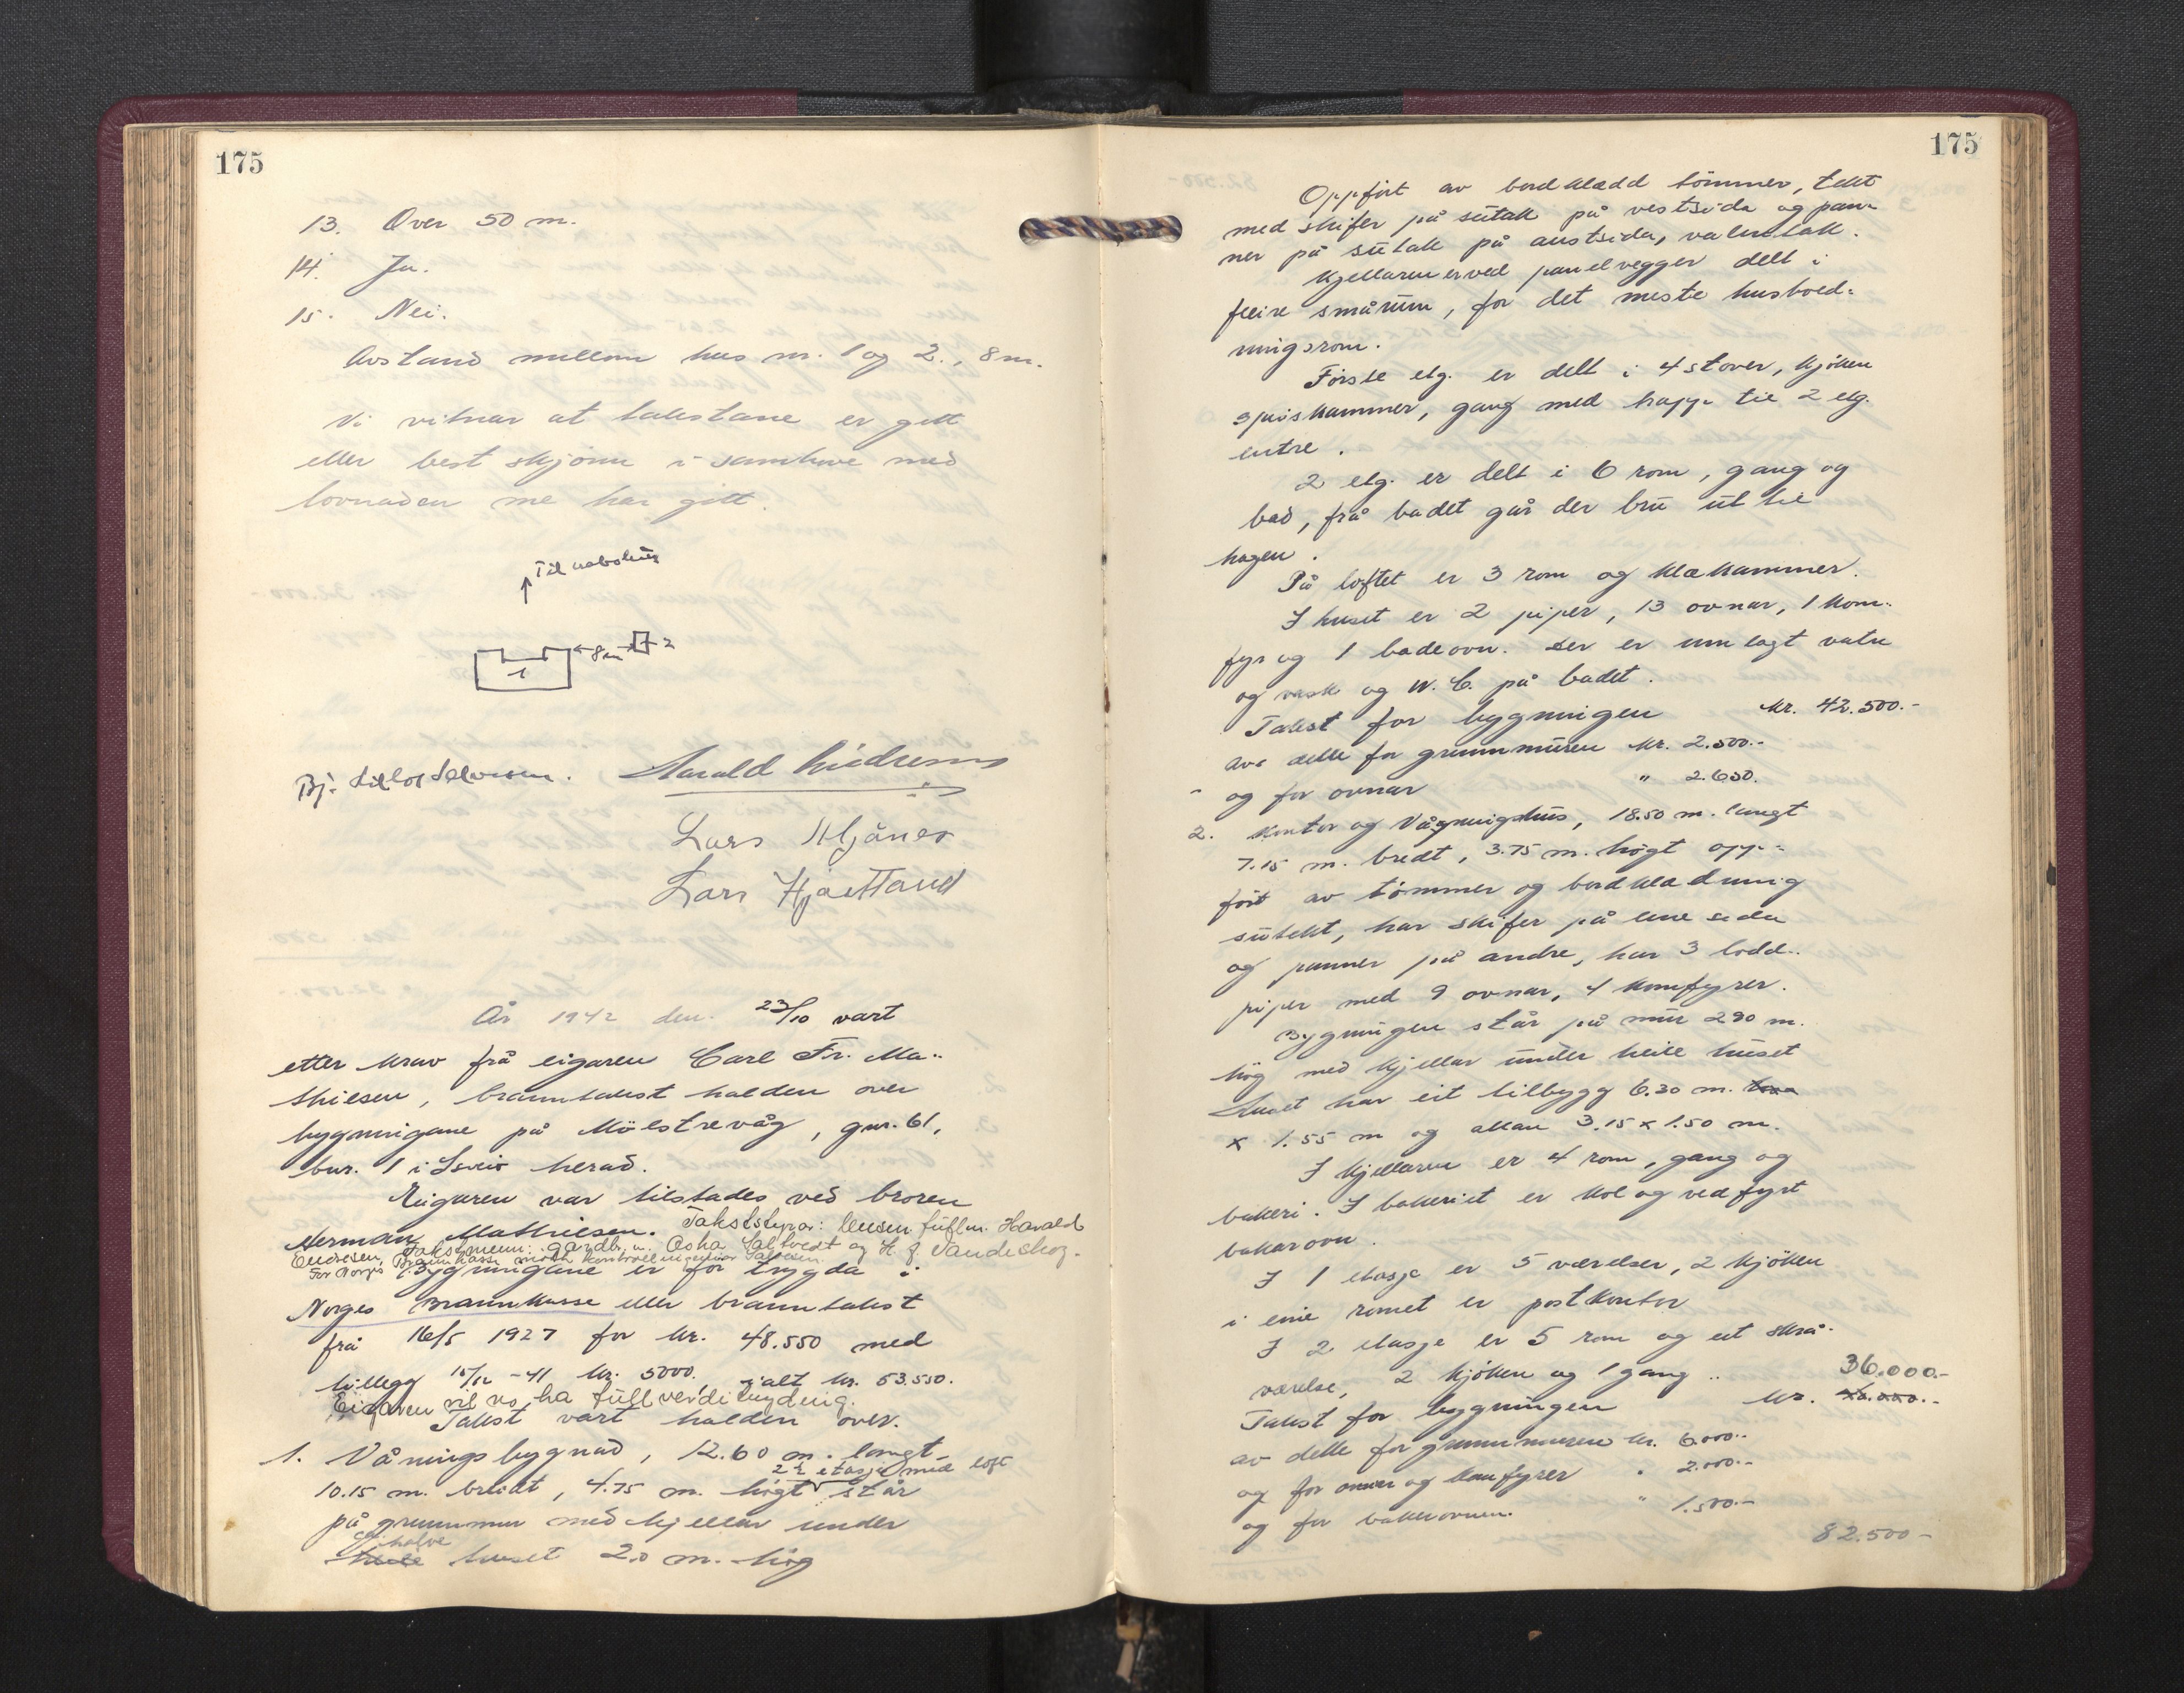 175
13. Over 50 m.
14. Ja.
15. Nei.
Avstand millom hus nr. 1 og 2., 8 m.
Vi vitnar at takstane er gitt
etter best skjönn i samhøve med
lovnaden me har gitt.
Til nabohus
1
8 m
2
Harald Endresen
Lars
Lars Hjortland
År 1942 den 23/10 vart
etter krav frå eigaren Carl Fr. Ma-
thiesen, branntakst halden over
bygningane på Mölstrevåg, gnr. 61,
bnr. 1 i Sveio herad.
Eigaren var tilstades ved broren
Herman Mathiesen. Takststyrar: lensm. fullm. Harald
Endresen, Takstmenn: gardbr. Saltvedt og H. J. Vandeskog.
For Norges Brannkasse møtte kontrollingeniør
Bygningane er for trygda i
Norges Brannkasse etter branntakst
frå 16/5 1927 for kr. 48.550 med
tillegg 15/12 -41 kr. 5000, ialt kr. 53.550.
Eigaren vil no ha fullverditrygding.
Takst vart halden over.
1. Våningsbygnad, 12.60 m. langt
2 ½ etasje med loft
10.15 m. breidt, 4.75 m. högt står
på grunnmur med kjellar under
halve
heile huset 2.0 m. hög
175
Oppfört av bordklædd tömmer, tekt
med skifer på sutak på vestsida og pan-
ner på sutak på austsida, valmtak.
Kjellaren er ved panelvegger delt i
fleire smårum, for det meste husbold-
ningsrom.
Förste etg. er delt i 4 stover, kjöken
spiskammer, gang med trapp til 2 etg.
entre.
2 etg. er delt i 6 rom, gang og
bad, frå badet går der bru ut til
hagen.
På loftet er 3 rom og klækammer.
I huset er 2 piper, 13 ovnar, 1 kom-
fyr og 1 badeovn. Der er innlagt vatn
og vask og W.C. på badet.
Takst for bygningen kr. 42.500.-
av dette for grunnmuren kr. 2.500.-
og for ovnar " 2.650.
2. Kontor og Våningshus, 18.50 m. langt
7.15 m. bredt, 3.75 m. högt opp-
fört av tömmer og bordklædning
sutekt, har skifer på eine sida
og panner på andre, har 3 lodd-
piper med 9 ovnar, 4 komfyrer.
Bygningen står på mur 2.90 m.
hög med kjellar under heile huset
Huset har eit tilbygg 6.30 m.
x 1.55 m og altan 3.15 x 1.50 m.
I kjellaren er 4 rom, gang og
bakeri. I bakeriet er kol og vedfyrt
bakarovn.
I 1 etasje er 5 værelser, 2 kjöken
i eine romet er postkontor
I 2 etasje er 5 rom og eit skrå-
værelse, 2 kjöken og 1 gang ..
36.000.-
Takst for bygningen kr. 40.000.-
av dette for grunnmuren kr. 6.000.-
og for ovnar og komfyrer " 2.000.-
og for bakerovnen. " 1.500.-
82.500-